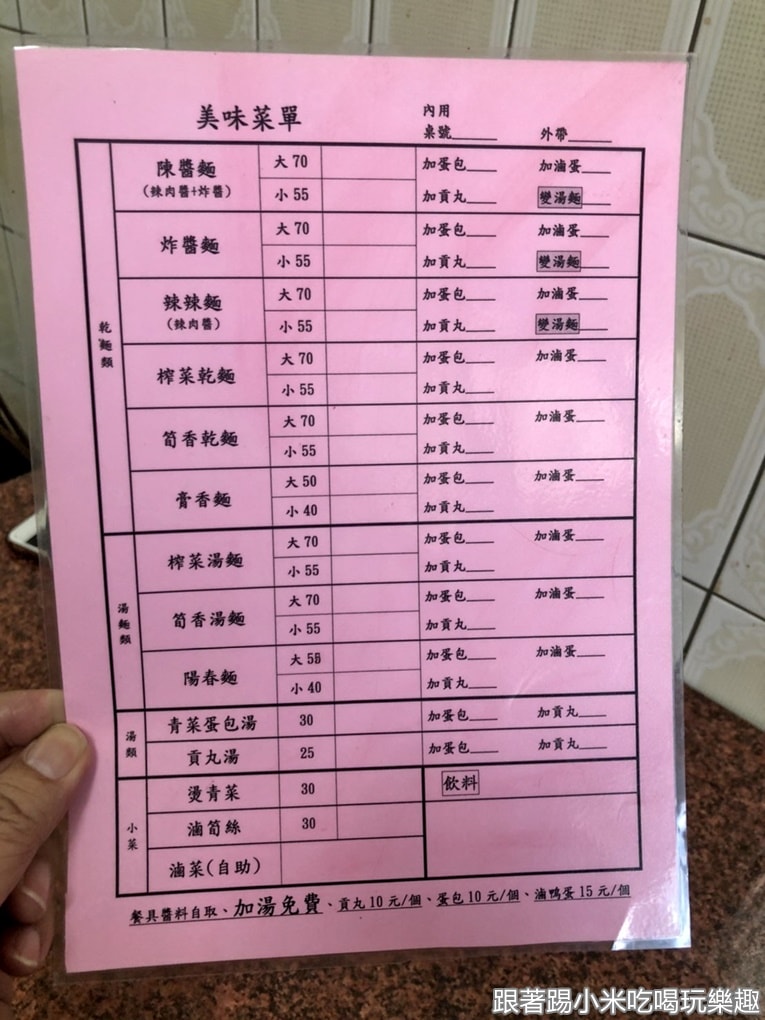 美味菜單
內用
桌號____ 外帶____
乾麵類
陳醬麵 大70 加蛋包___ 加滷蛋___
(辣肉醬+炸醬) 小55 加貢丸___ 變湯麵___
炸醬麵 大70 加蛋包___ 加滷蛋___
小55 加貢丸___ 變湯麵___
辣辣麵 大70 加蛋包___ 加滷蛋___
(辣肉醬) 小55 加貢丸___ 變湯麵___
榨菜乾麵 大70 加蛋包___ 加滷蛋___
小55 加貢丸___
筍香乾麵 大70 加蛋包___ 加滷蛋___
小55 加貢丸___
膏香麵 大50 加蛋包___ 加滷蛋___
小40 加貢丸___
湯麵類
榨菜湯麵 大70 加蛋包___ 加滷蛋___
小55 加貢丸___
筍香湯麵 大70 加蛋包___ 加滷蛋___
小55 加貢丸___
陽春麵 大5 加蛋包___ 加滷蛋___
小40 加貢丸___
湯類
青菜蛋包湯 30 加蛋包___ 加貢丸___
貢丸湯 25 加蛋包___ 加貢丸___
小菜
燙青菜 30 飲料
滷筍絲 30
滷菜(自助)
餐具醬料自取、加湯免費、貢丸10元/個、蛋包10元/個、滷鴨蛋15元/個
跟著踢小米吃喝玩樂趣